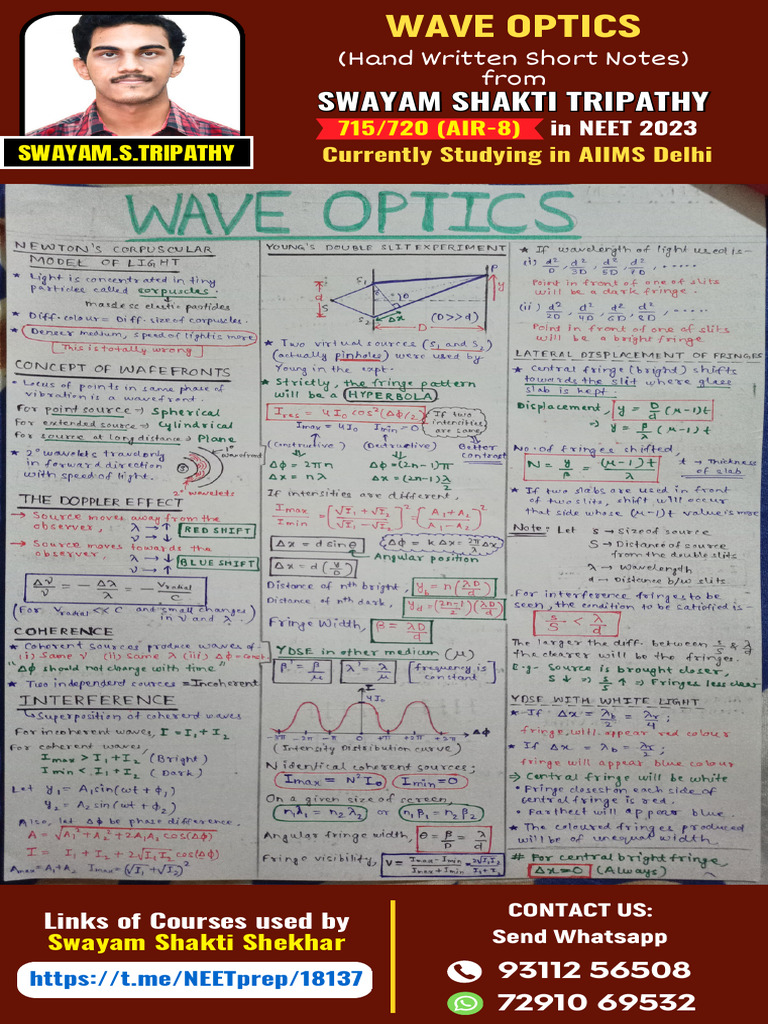 WAVE OPTICS
(Hand Written Short Notes)
from
SWAYAM SHAKTI TRIPATHY
715/720 (AIR-8) in NEET 2023
Currently Studying in AIIMS Delhi
SWAYAM.S.TRIPATHY
WAVE OPTICS
NEWTON'S CORPUSCULAR
MODEL OF LIGHT
★ Light is concentrated in tiny
particles called corpuscles.
massless elastic particles
★ Diff. colour = Diff. size of corpuscles.
★ Denser medium, speed of light is more
This is totally wrong
CONCEPT OF WAFEFRONTS
• Locus of points in same phase of
vibration is a wavefront.
For point source → Spherical
For extended source → Cylindrical
For source at long distance → Plane
★ 2° wavelets travel only
in forward direction
with speed of light.
1° wavefront
S
2° wavelets
THE DOPPLER EFFECT
→ Source moves away from the
observer, λ → ↑
ν → ↓
RED SHIFT
→ Source moves towards the
observer, λ → ↓
ν → ↑
BLUE SHIFT
Δν/ν = -Δλ/λ = -Vradial/C
(For Vradial << C and small changes
in ν and λ)
COHERENCE
★ Coherent sources produce waves of-
(i) Same ν (ii) Same λ (iii) Δϕ = const
"Δϕ should not change with time"
★ Two independent sources = Incoherent
INTERFERENCE
Superposition of coherent waves
For incoherent waves, I = I₁ + I₂
For coherent waves,
Imax > I₁ + I₂ (Bright)
Imin < I₁ + I₂ (Dark)
Let y₁ = A₁ sin(ωt + ϕ₁)
y₂ = A₂ sin(ωt + ϕ₂)
Also, let Δϕ be phase difference.
A = √A₁² + A₂² + 2A₁A₂ cos(Δϕ)
I = I₁ + I₂ + 2√I₁I₂ cos(Δϕ)
Amax = A₁ + A₂ Imax = (√I₁ + √I₂)²
YOUNG'S DOUBLE SLIT EXPERIMENT
P
S₁
y
d
θ
S₂
Δx
(D >> d)
D
★ Two virtual sources (S₁ and S₂)
(actually pinholes) were used by
Young in the expt.
★ Strictly, the fringe pattern
will be a HYPERBOLA
Ires = 4I₀ cos²(Δϕ/2)
If two
intensities
are same
Imax = 4I₀ Imin = 0
(Constructive) (Destructive)
Better
contrast
Δϕ = 2πn Δϕ = (2n-1)π
Δx = nλ Δx = (2n-1)λ/2
If intensities are different,
Imax/Imin = (√I₁ + √I₂/√I₁ - √I₂)² = (A₁ + A₂/A₁ - A₂)²
Δx = d sinθ
Δϕ = kΔx = 2π/λ Δx
Angular position
Δx = d(y/D)
Distance of nth bright, yb = n(λD/d)
Distance of nth dark, yd = (2n-1/2)(λD/d)
Fringe Width, β = λD/d
YDSE in other medium (μ)
β' = β/μ λ' = λ/μ frequency is
constant
I
4I₀
-3π -2π -π 0 +π +2π +3π Δϕ
(Intensity Distribution curve)
N identical coherent sources;
Imax = N²I₀ Imin = 0
On a given size of screen,
n₁λ₁ = n₂λ₂ or n₁β₁ = n₂β₂
Angular fringe width, θ = β/D = λ/d
Fringe visibility, V = Imax - Imin/Imax + Imin = 2√I₁I₂/I₁ + I₂
★ If wavelength of light used is-
(i) d²/D, d²/3D, d²/5D, d²/7D, .....
Point in front of one of slits
will be a dark fringe.
(ii) d²/2D, d²/4D, d²/6D, d²/8D, .....
Point in front of one of slits
will be a bright fringe
LATERAL DISPLACEMENT OF FRINGES
★ Central fringe (bright) shifts
towards the slit where glass
slab is kept
Displacement, y = D/d (μ-1)t
⇒ y = β/λ (μ-1)t
No. of fringes shifted,
N = y/β = (μ-1)t/λ
t → Thickness
of slab
★ If two slabs are used in front
of two slits, shift will occur
that side whose (μ-1)t value is more
Note: Let s → Size of source
S → Distance of source
from the double slits
λ → Wavelength
d → Distance b/w slits
For interference fringes to be
seen, the condition to be satisfied is-
s/S < λ/d
The larger the diff. between s/S & λ/d
the clearer will be the fringes.
E.g- Source is brought closer,
S ↓ ⇒ s/S ↑ ⇒ Fringes less clear
YDSE WITH WHITE LIGHT
★ If Δx = λb/2 = λr/4,
fringe will appear red colour
★ If Δx = λb = λr/2;
fringe will appear blue colour
⇒ Central fringe will be white
• Fringe closest on each side of
central fringe is red.
• Farthest will appear blue.
★ The coloured fringes produced
will be of unequal width
# For central bright fringe
Δx = 0 (Always)
Links of Courses used by
Swayam Shakti Shekhar
https://t.me/NEETprep/18137
CONTACT US:
Send Whatsapp
93112 56508
72910 69532